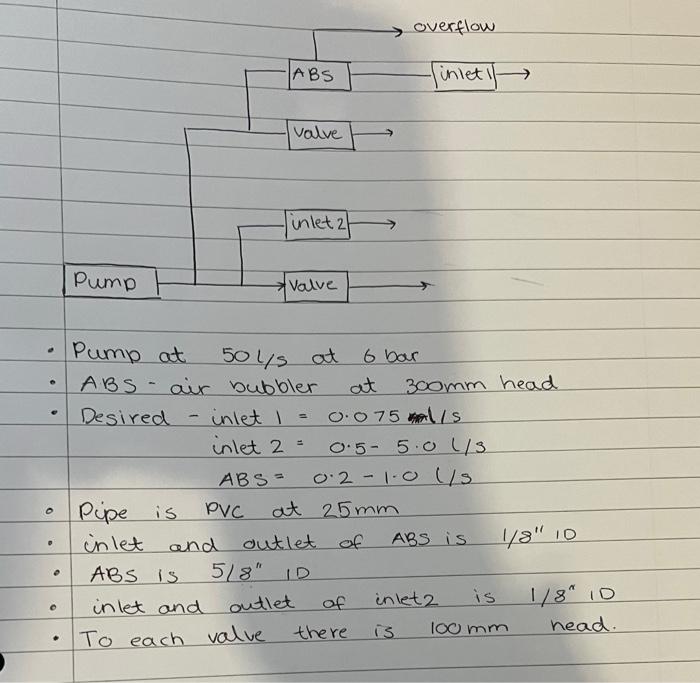 overflow
ABS
inlet 1
valve
inlet 2
Pump
valve
• Pump at 50 l/s at 6 bar
• ABS - air bubbler at 300mm head
• Desired - inlet 1 = 0.075 l/s
inlet 2 = 0.5 - 5.0 l/s
ABS = 0.2 - 1.0 l/s
• Pipe is PVC at 25mm
• inlet and outlet of ABS is 1/8" ID
• ABS is 5/8" ID
• inlet and outlet of inlet2 is 1/8" ID
• To each valve there is 100mm head.